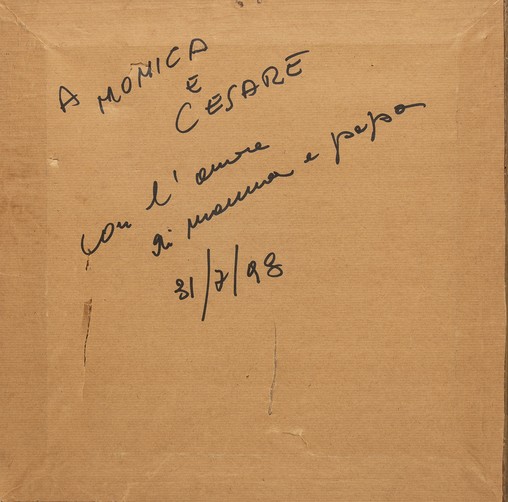 A MONICA
E
CESARE
con l'amore
di mamma e papa
31/7/98